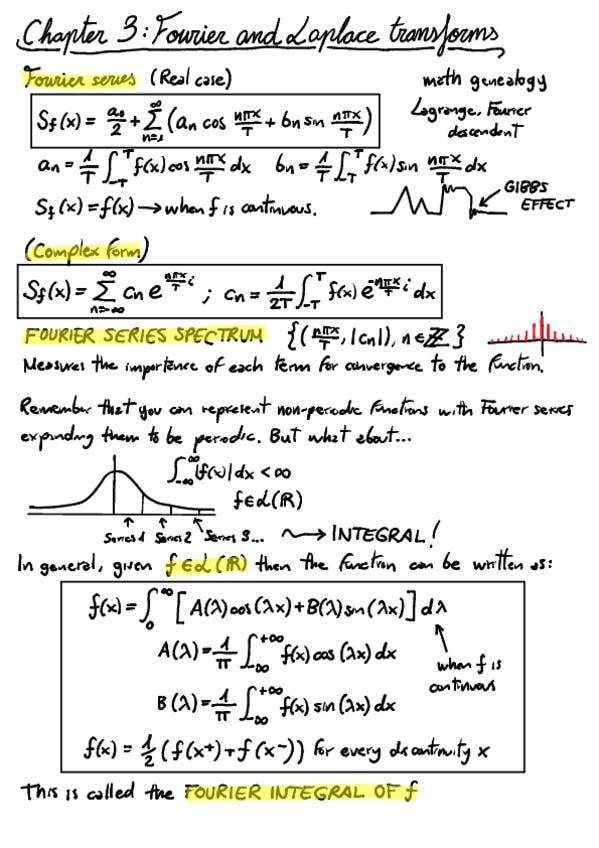 Chapter 3: Fourier and Laplace transforms
Fourier series (Real case)
math genealogy
Lagrange, Fourier
descendent
Sf(x) = a₀/2 + ∑_{n=1}^{∞} (aₙ cos nπx/T + bₙ sin nπx/T)
aₙ = 1/T ∫_{-T}^{T} f(x) cos nπx/T dx   bₙ = 1/T ∫_{-T}^{T} f(x) sin nπx/T dx
Sf(x) = f(x) → when f is continuous.
GIBBS
EFFECT
(Complex form)
Sf(x) = ∑_{n=-∞}^{∞} cₙ e^{nπx/T i} ; cₙ = 1/2T ∫_{-T}^{T} f(x) e^{-nπx/T i} dx
FOURIER SERIES SPECTRUM {(nπx/T, |cₙ|), n∈ℤ}
Measures the importance of each term for convergence to the function.
Remember that you can represent non-periodic functions with Fourier series
expanding them to be periodic. But what about...
∫_{-∞}^{∞} |f(x)| dx < ∞
f∈L(ℝ)
Series 1 Series 2 Series 3... ⟿ INTEGRAL!
In general, given f∈L(ℝ) then the function can be written as:
f(x) = ∫_{0}^{∞} [A(λ)cos(λx)+B(λ)sin(λx)] dλ
A(λ) = 1/π ∫_{-∞}^{+∞} f(x) cos(λx) dx
when f is
continuous
B(λ) = 1/π ∫_{-∞}^{+∞} f(x) sin(λx) dx
f(x) = 1/2 (f(x⁺)+f(x⁻)) for every discontinuity x
This is called the FOURIER INTEGRAL OF f